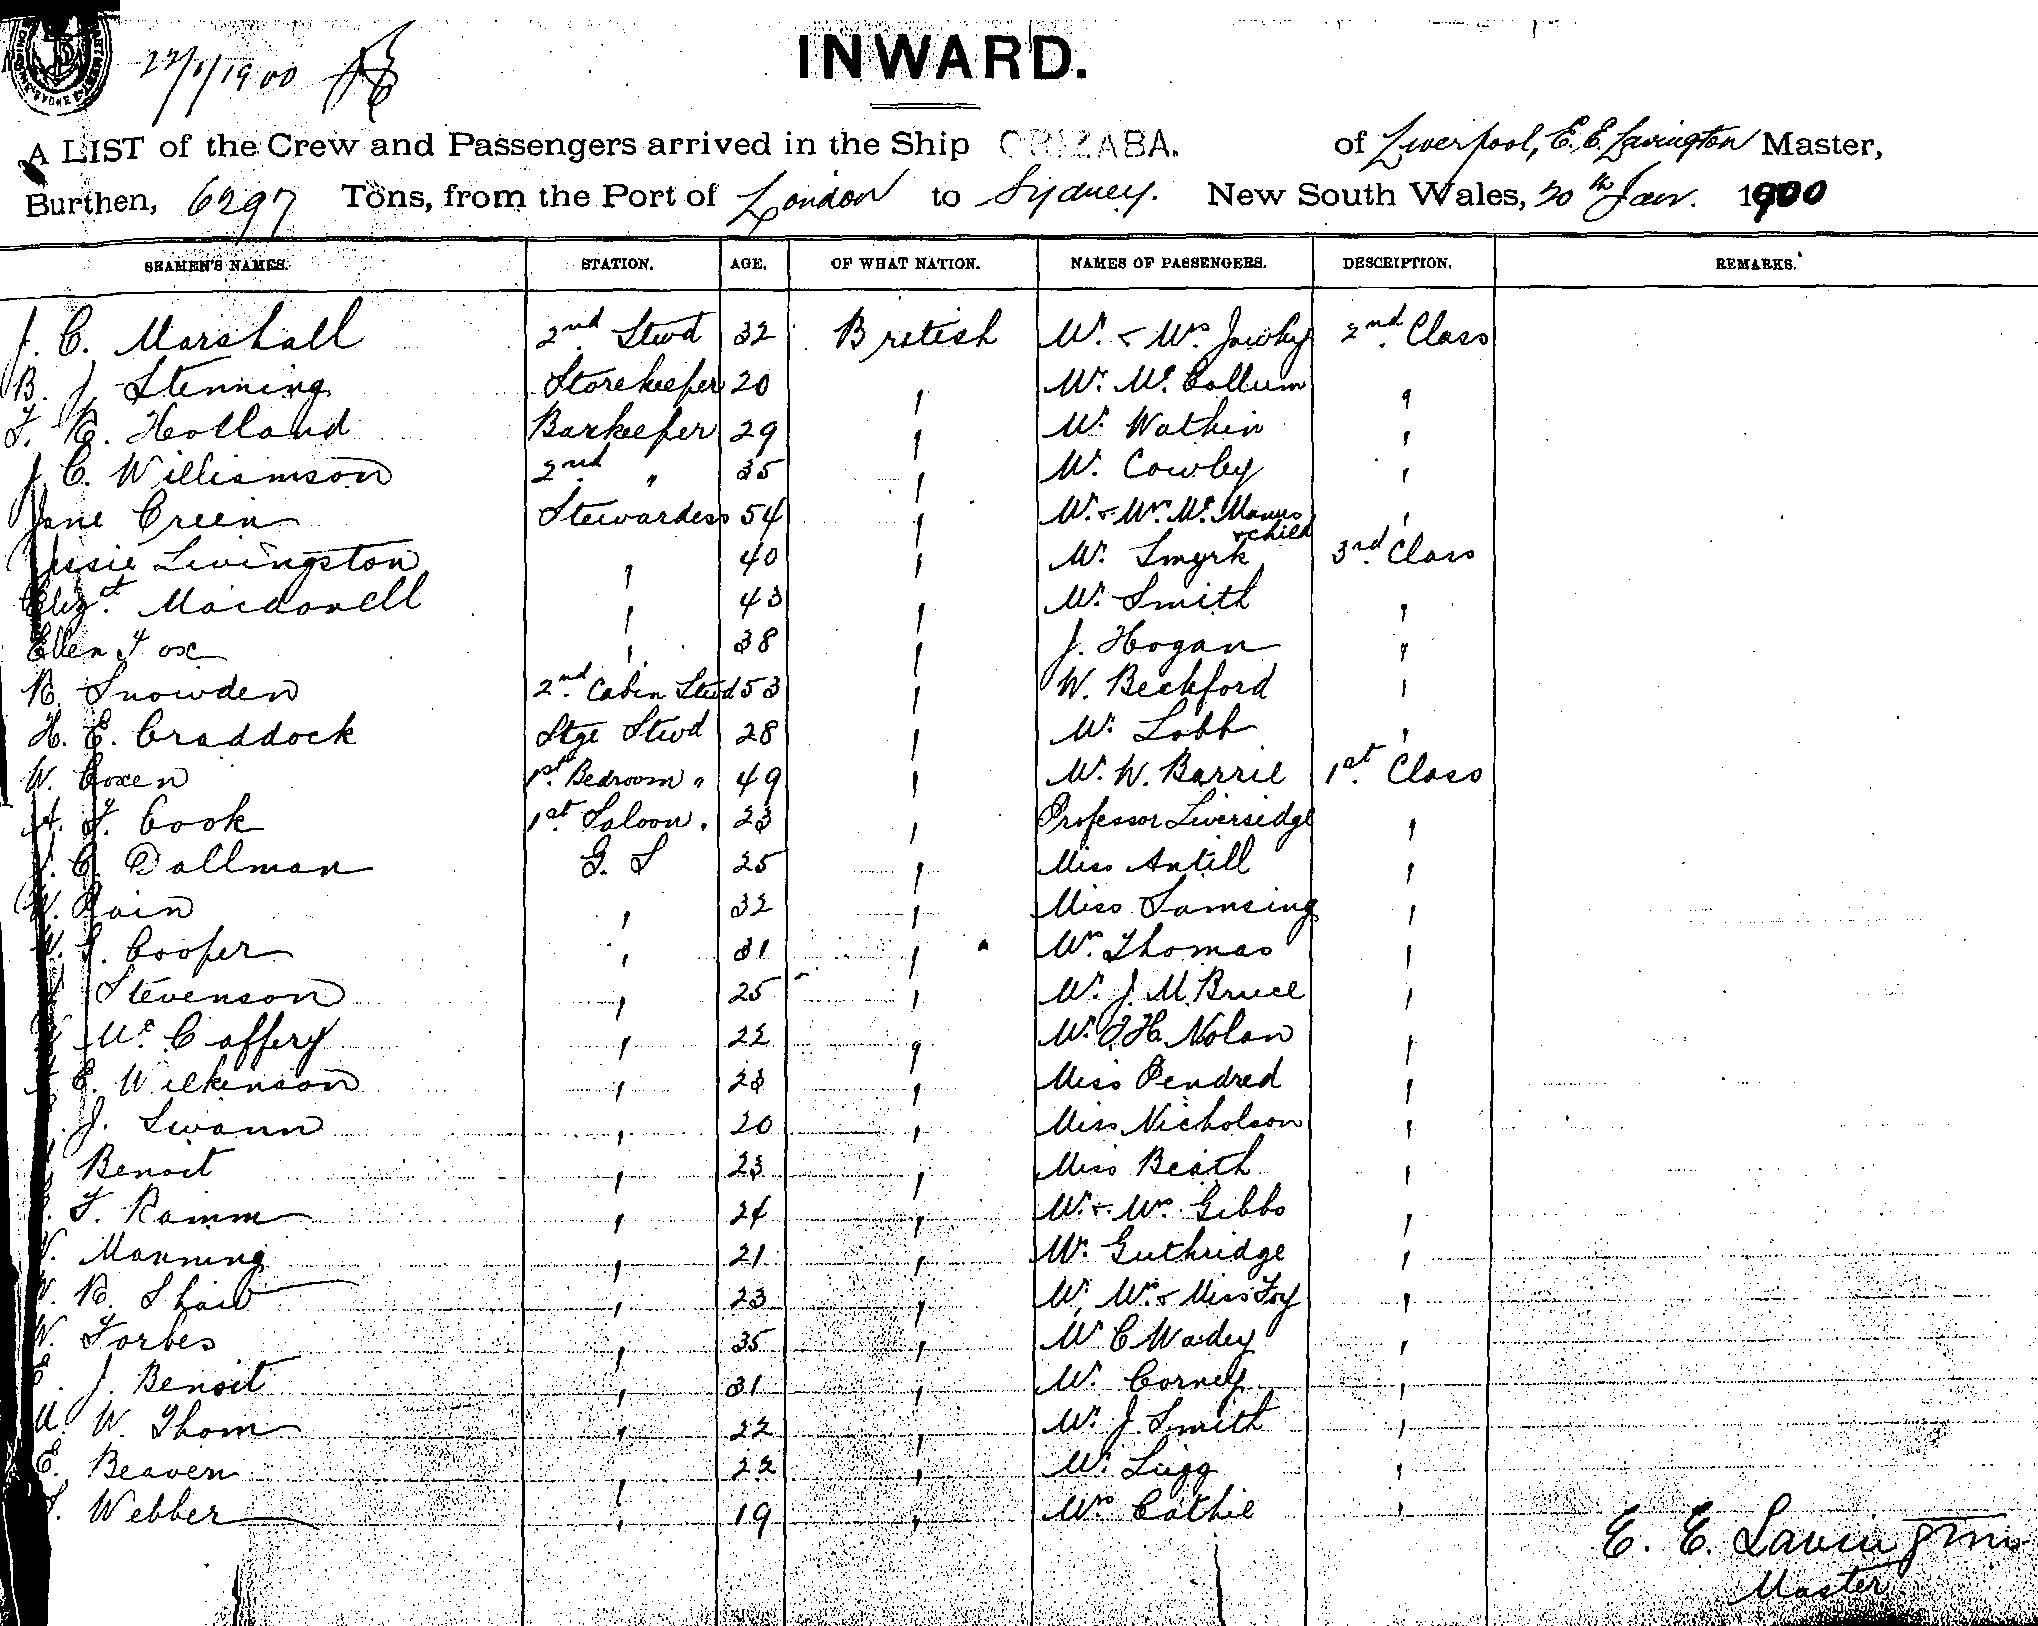 22/1/1900
INWARD.
A LIST of the Crew and Passengers arrived in the Ship ORIZABA. of Liverpool, E. E. Lavington Master,
Burthen, 6297 Tons, from the Port of London to Sydney. New South Wales, 20th Jan. 1900
SEAMEN'S NAMES. STATION. AGE. OF WHAT NATION. NAMES OF PASSENGERS. DESCRIPTION. REMARKS.
J. C. Marshall 2nd Stwd 32 British Mr. & Mrs 2nd Class
B. J. Stenning Storekeeper 20 " Mr. Mc. Collum "
F. R. Holland Barkeeper 29 " Mr. Watkin "
J. C. Williamson 2nd " 35 " Mr. Cowley "
Jane Green Stewardess 54 " Mr. & Mrs. Mc. Manus & child "
Jessie Livingston " 40 " Mr. Smyrk 3rd Class
Elizt. Macdonell " 43 " Mr. Smith "
Ellen Fox " 38 " J. Hogan "
R. Snowden 2nd Cabin Stwd 53 " W. Beckford "
H. E. Craddock Stge Stwd 28 " Mr. Lobb "
W. Coxen 1st Bedroom " 49 " Mr. W. Barrie 1st Class
A. F. Cook 1st Saloon " 23 " Professor Liversidge "
C. Dallman G. S 25 " Miss Antill "
W. Rain " 32 " Miss Samsing "
S. Cooper " 31 " Mrs. Thomas "
Stevenson " 25 " Mr. J. M. Bruce "
Mc. Caffery " 22 " Mr. J H. Nolan "
E. Wilkinson " 23 " Miss Pendred "
J. Swann " 20 " Miss Nicholson "
Benoit " 23 " Miss Beath "
F. Ramm " 24 " Mr. & Mrs. Gibbs "
W. Manning " 21 " Mr. Guthridge "
W. R. Shaw " 23 " Mr. Mrs. & Miss Foy "
W. Forbes " 35 " Mr C Wadey "
E. J. Benoit " 31 " Mr. Corney "
M. W. Thom " 22 " Mr. J. Smith "
E. Beaven " 22 " Mr. Lugg "
S. Webber " 19 " Mrs Cathie "
E. E. Lavington
Master